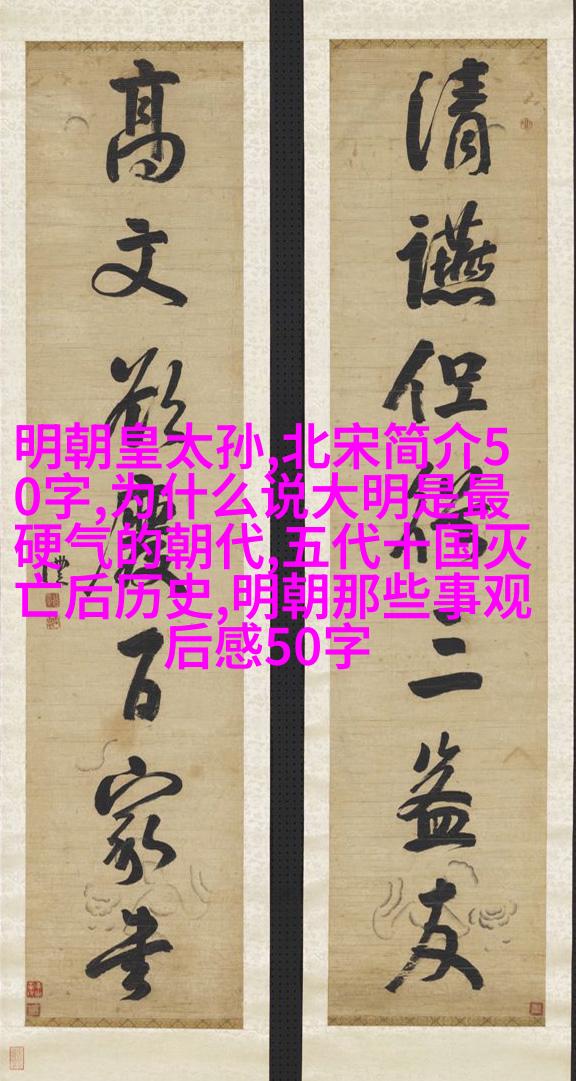 清讌但三益友
高文欲廢百家書
明朝皇太孙,北宋简介5
0字,为什么说大明是最
硬气的朝代,五代十国灭
亡后历史,明朝那些事观
后感50字